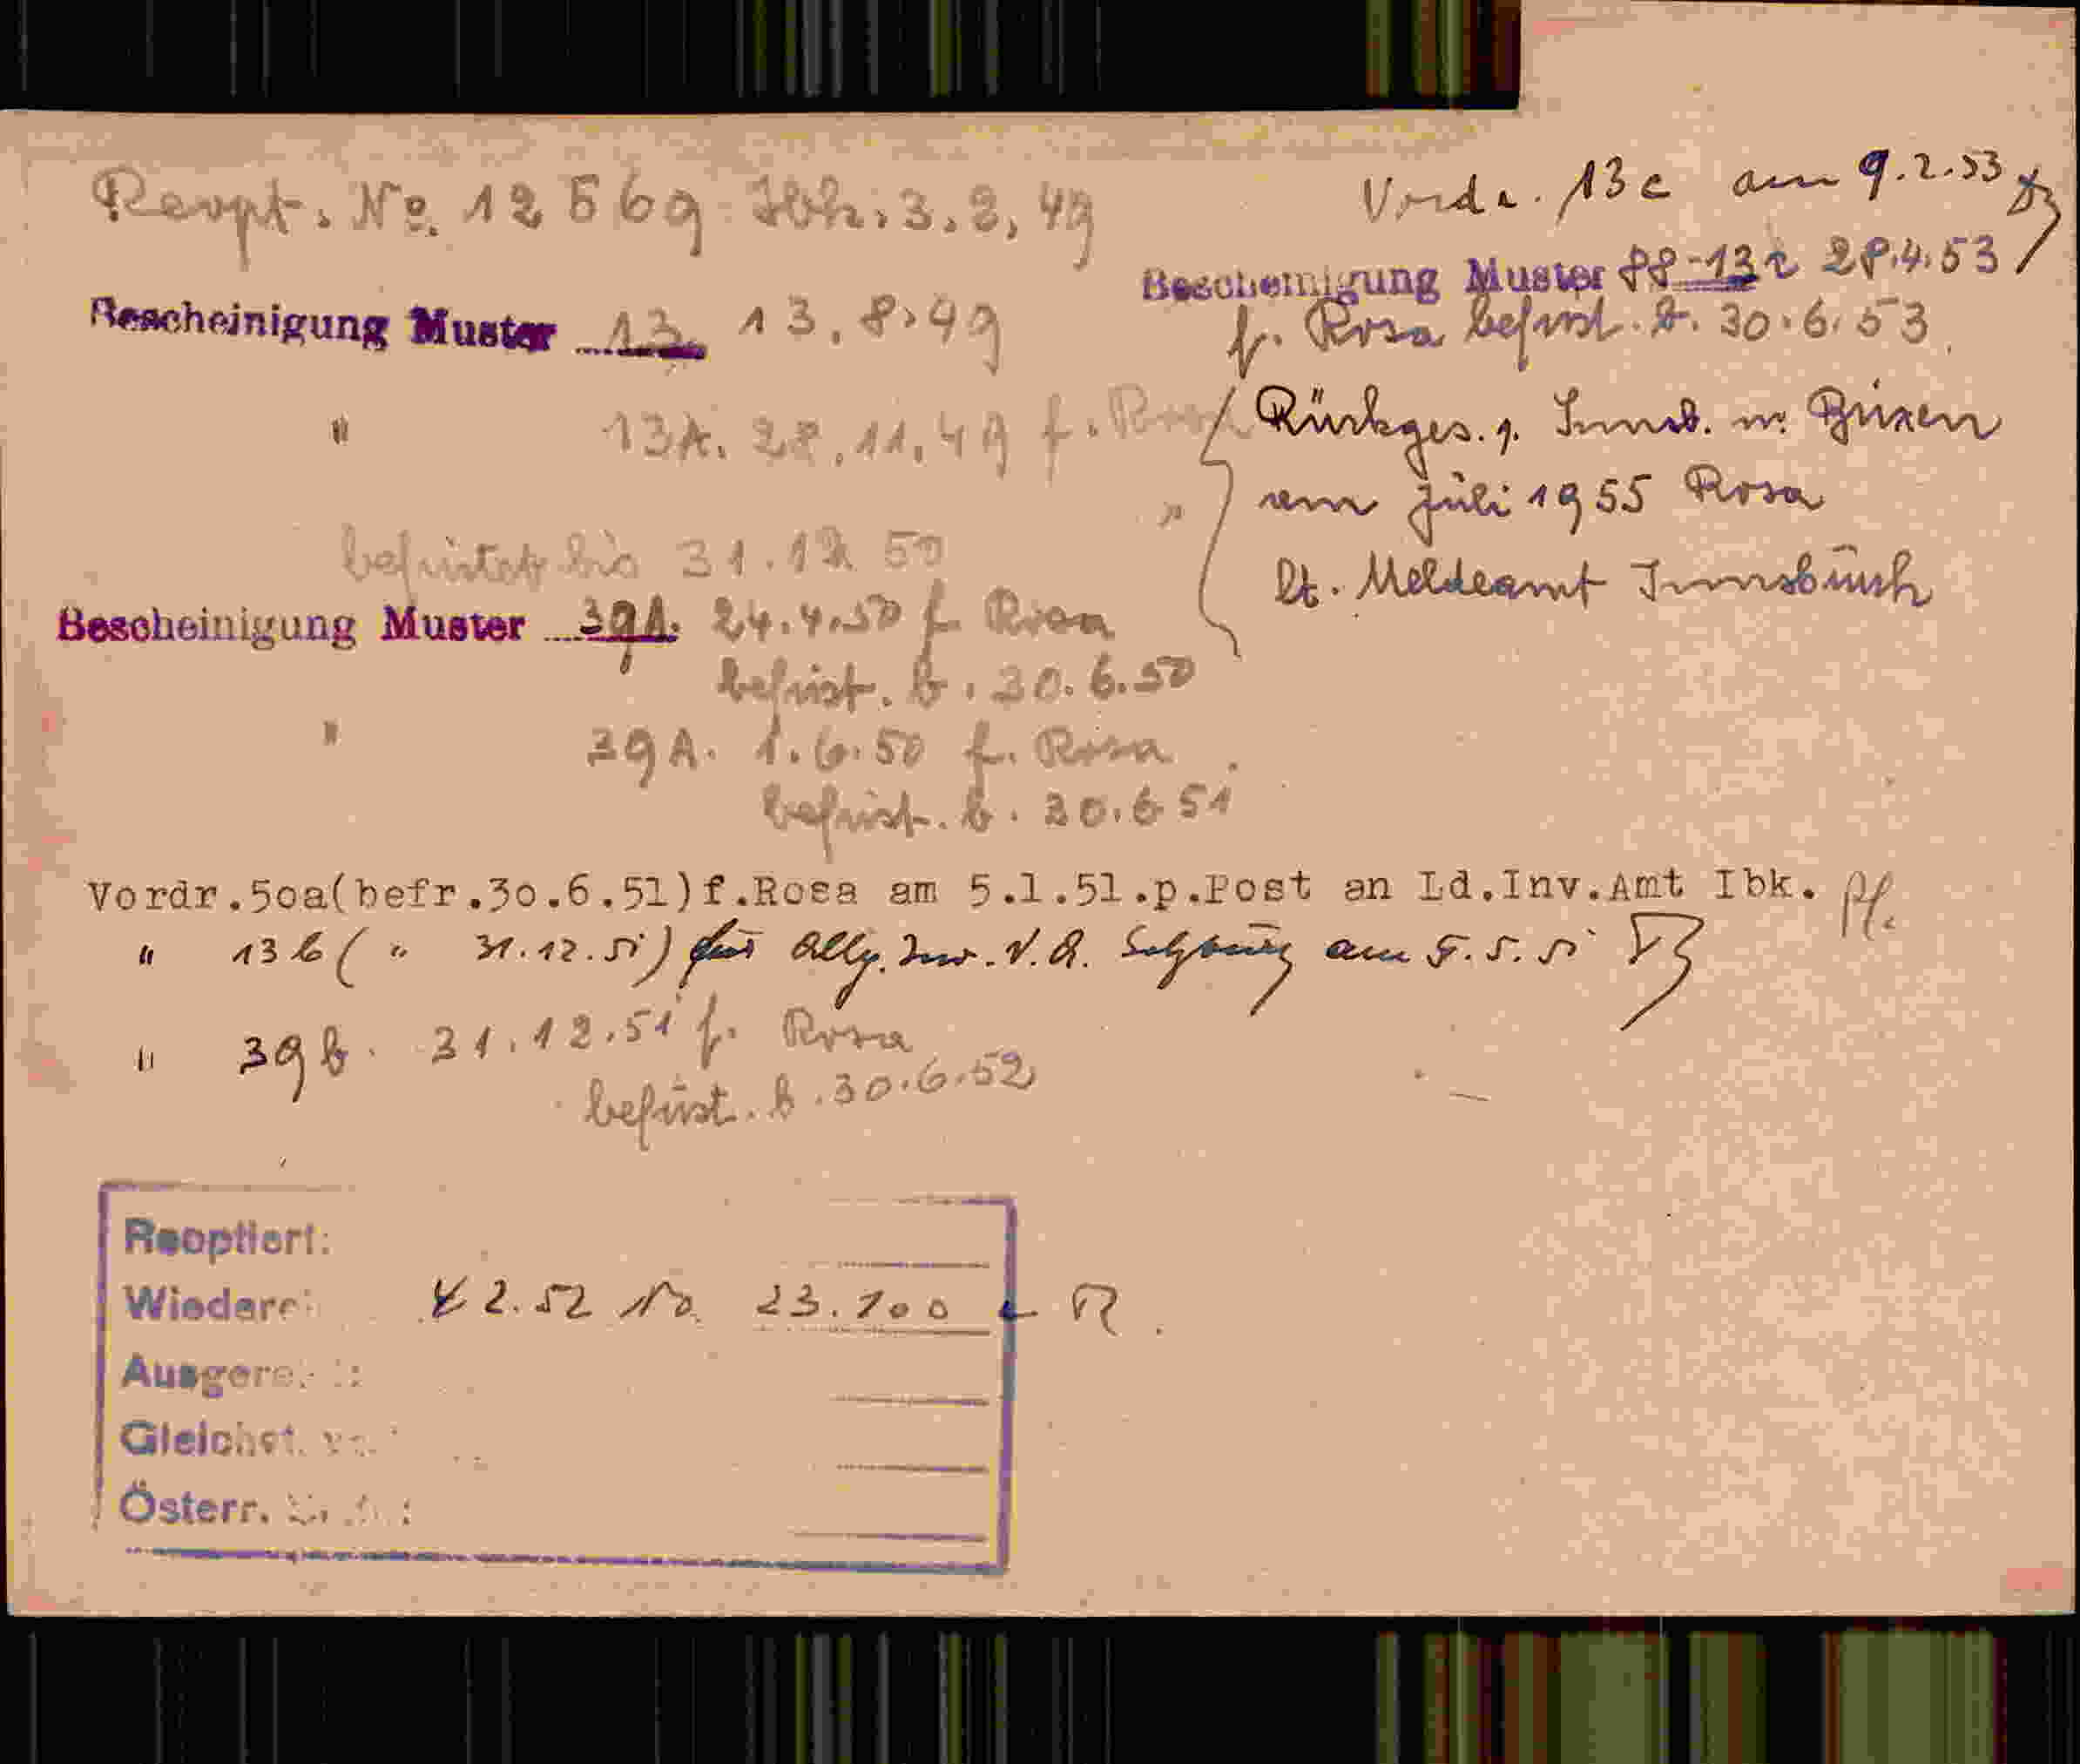 Reopt. No. 12569 Ibk. 3.2.49
Bescheinigung Muster 13. 13.8.49
" 13A. 28.11.49 f. Rosa
befristet bis 31.12.50
Bescheinigung Muster 39A. 24.4.50 f. Rosa
befrist. b. 30.6.50
" 39A. 1.6.50 f. Rosa
befrist. b. 30.6.51
Vordr. 13c am 9.2.53
Bescheinigung Muster 88-13c 28.4.53
f. Rosa befrist. b. 30.6.53
Rückges. v. Innsb. n. Brixen
am Juli 1955 Rosa
lt. Meldeamt Innsbruck
Vordr.50a(befr.30.6.51)f.Rosa am 5.1.51.p.Post an Ld.Inv.Amt Ibk.
" 13b ( " 31.12.51) für Allg. Inv. V. A. Salzburg am 5.5.51
" 39b. 31.12.51 f. Rosa
befrist. b. 30.6.52
Reoptiert:
Wieder 2.52 No. 23.100
Ausgere
Gleichst.
Österr.